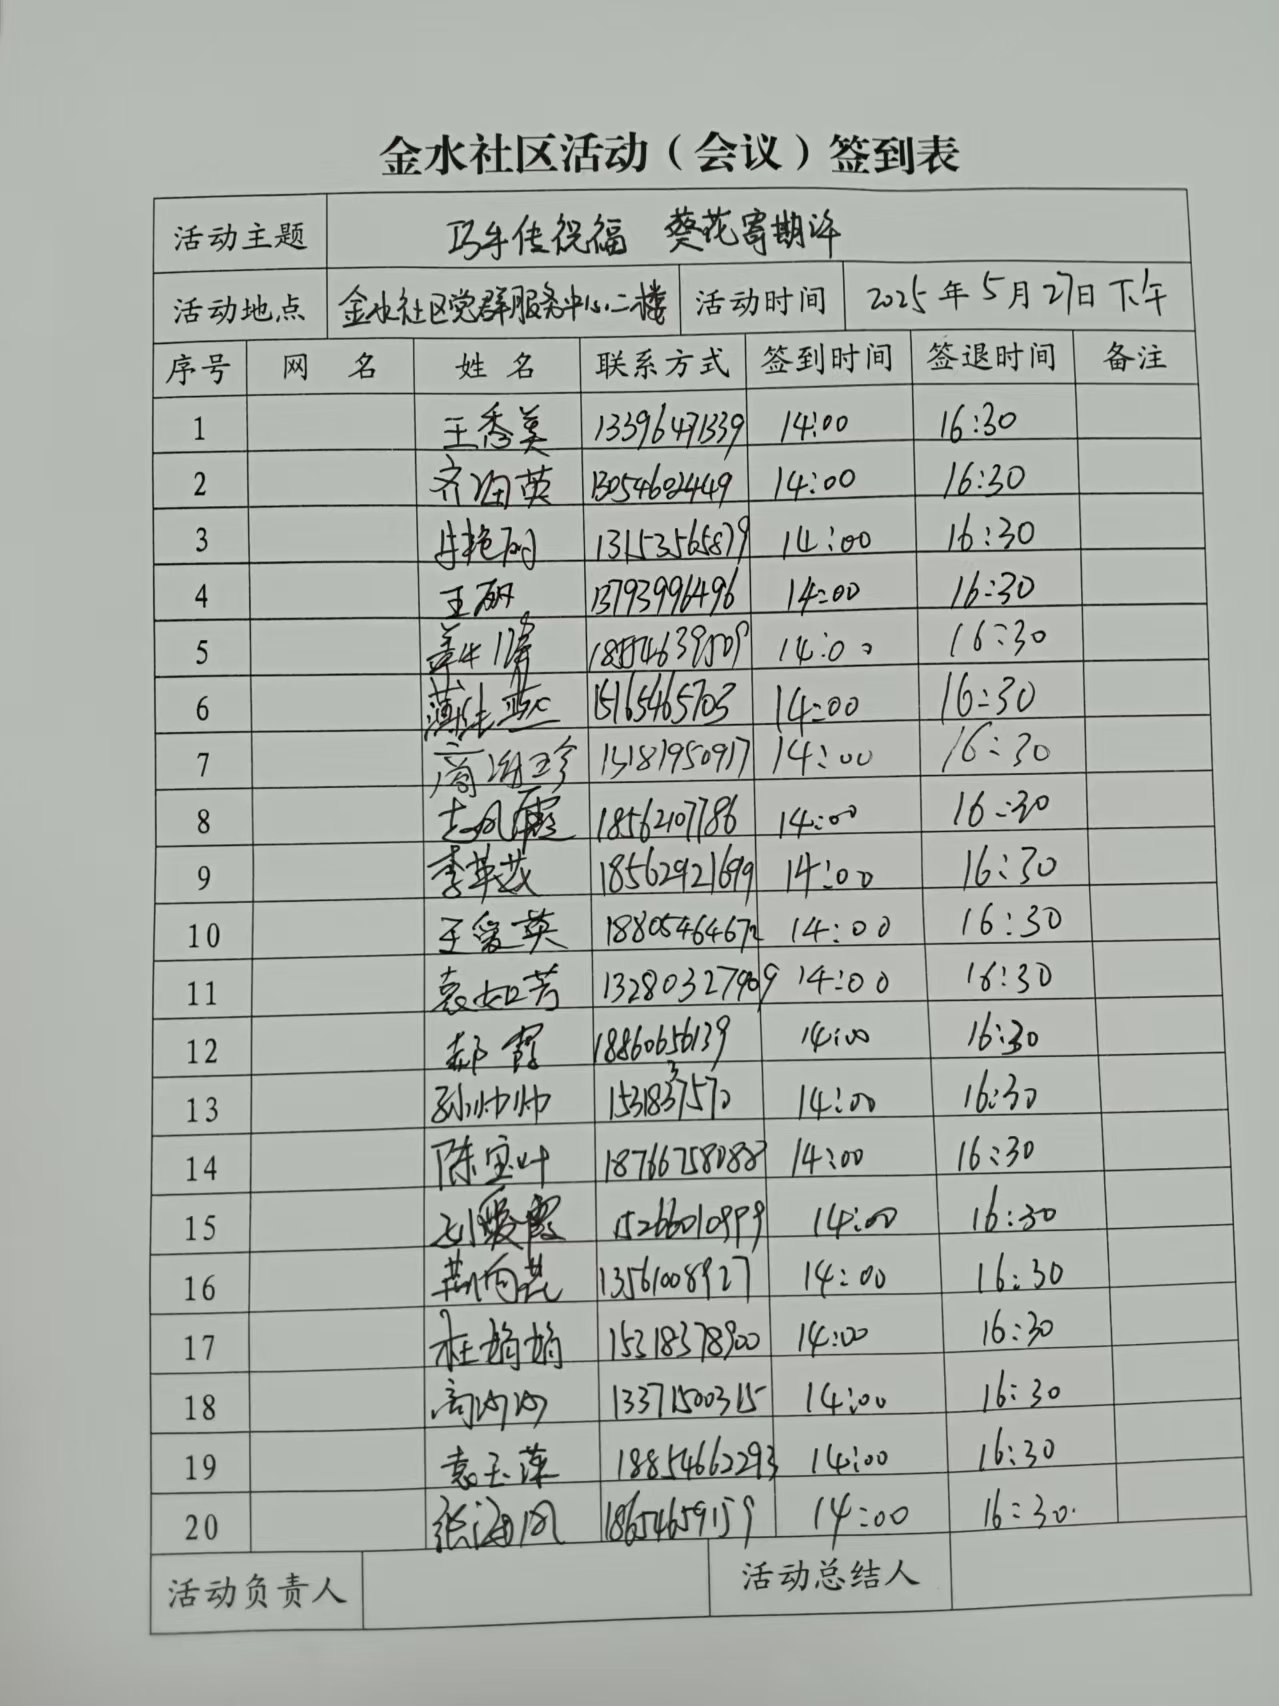 金水社区活动（会议）签到表
活动主题 巧手传祝福 葵花寄期许
活动地点 金水社区党群服务中心二楼 活动时间 2025年5月27日下午
序号 网 名 姓 名 联系方式 签到时间 签退时间 备注
1 王秀英 13396471339 14:00 16:30
2 14:00 16:30
3 13153565879 14:00 16:30
4 王丽 13793996496 14:00 16:30
5 14:00 16:30
6 15165465703 14:00 16:30
7 14:00 16:30
8 18562107786 14:00 16:30
9 李英 18562921699 14:00 16:30
10 王爱英 18805464672 14:00 16:30
11 袁如芳 14:00 16:30
12 郝霞 18860656139 14:00 16:30
13 孙帅帅 14:00 16:30
14 陈宝叶 18766758088 14:00 16:30
15 刘爱霞 15266010999 14:00 16:30
16 13561008927 14:00 16:30
17 杜娟娟 15318378900 14:00 16:30
18 13371500315 14:00 16:30
19 袁玉萍 18854662293 14:00 16:30
20 张海风 18654659159 14:00 16:30
活动负责人 活动总结人